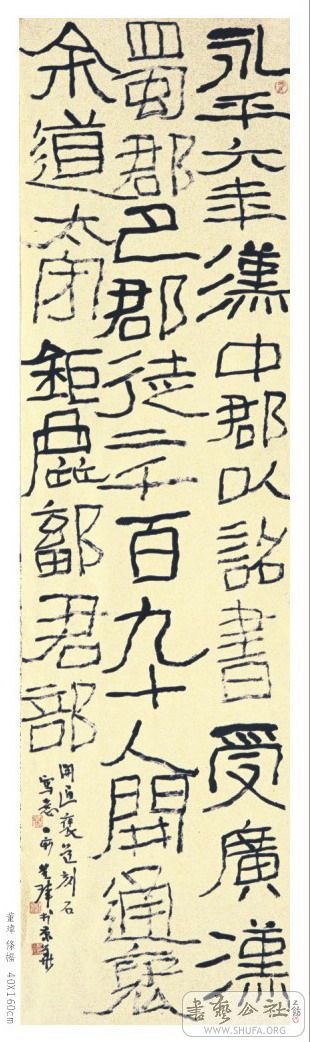 永平六年漢中郡以詔書受廣漢
蜀郡巴郡徒二千百九十人開通褒
余道太守鉅鹿鄐君部
開通褒道刻石
寫意 董瑋於京華
董瑋 條幅 40X160cm
書藝公社
WWW.SHUFA.ORG